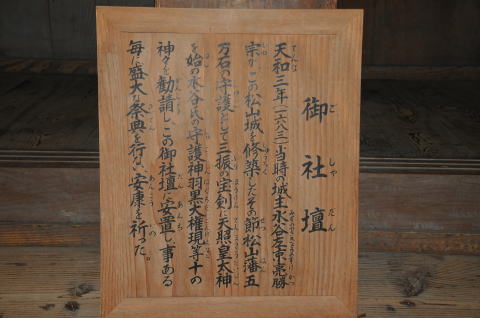 御社壇
天和三年(一六八三)当時の城主水谷左京亮勝
宗がこの松山城を修築したその節松山藩五
万石の守護として三振の宝剣に天照皇大神
を始め水谷氏の守護神羽黒大権現等十の
神々を勧請しこの御社壇に安置し事ある
毎に盛大な祭典を行い安康を祈った。